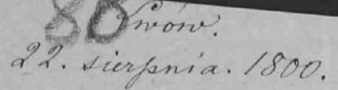 80 Lwów.
22. sierpnia. 1800.